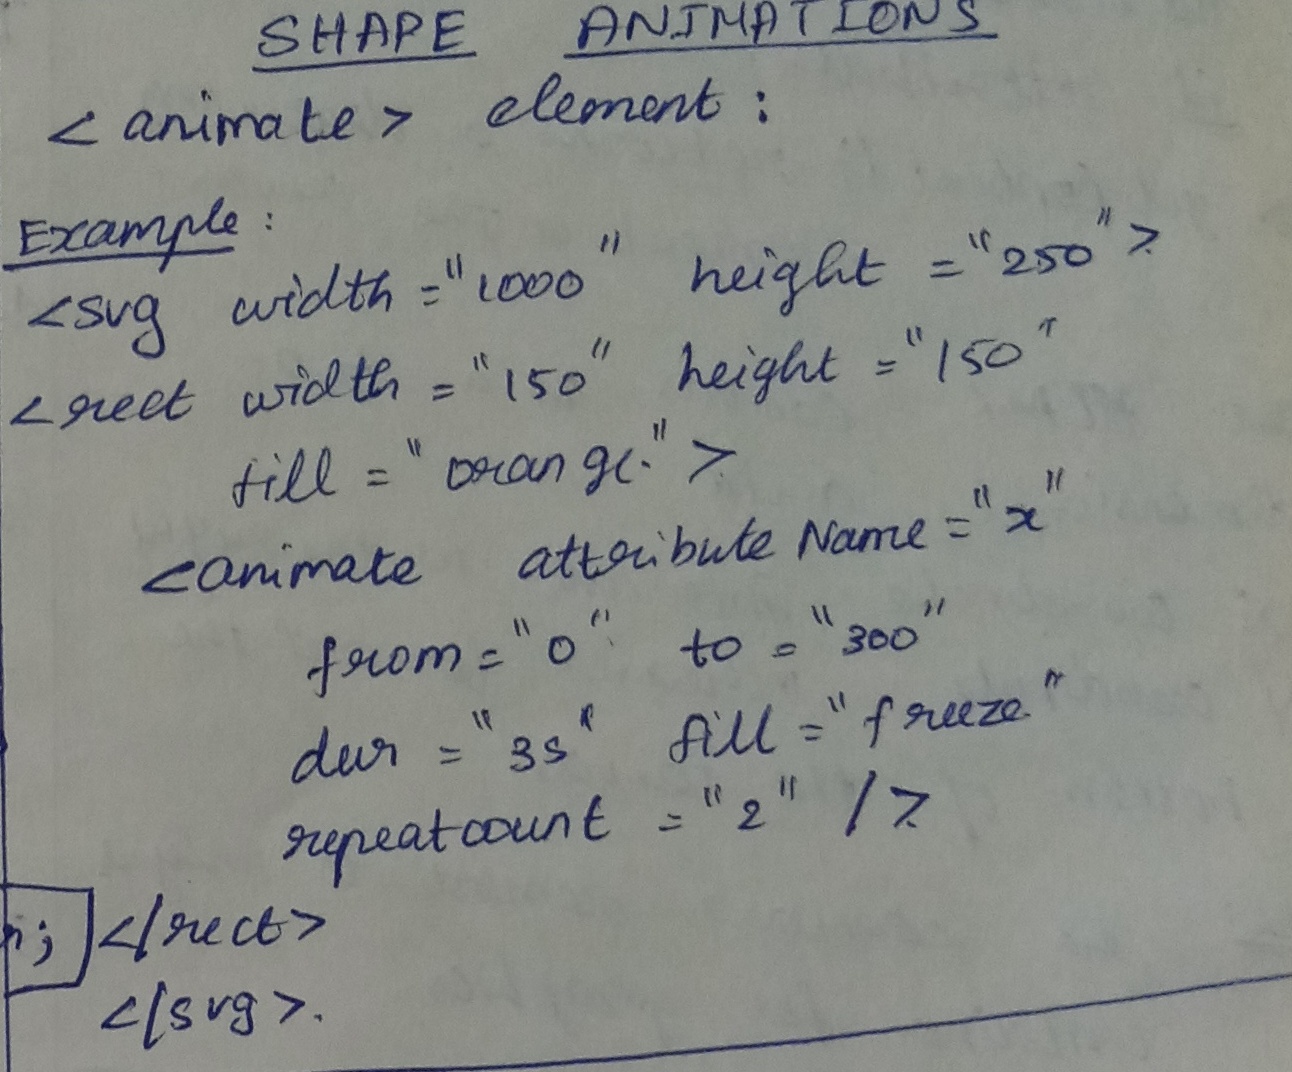 SHAPE ANIMATIONS
<animate> element :
Example :
<svg width="1000" height="250">
<rect width="150" height="150"
fill="orange">
<animate attributeName="x"
from="0" to="300"
dur="3s" fill="freeze"
repeatcount="2" />
</rect>
</svg>.